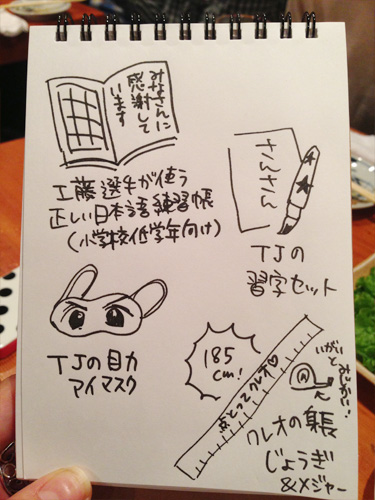 みなさんに
感謝して
います
工藤選手が使う
正しい日本語練習帳
(小学校低学年向け)
さんさん
TJの
習字セット
TJの目力
アイマスク
185
cm!
点とってクレオ♡
いがいと
クレオの身長
じょうぎ
&メジャー